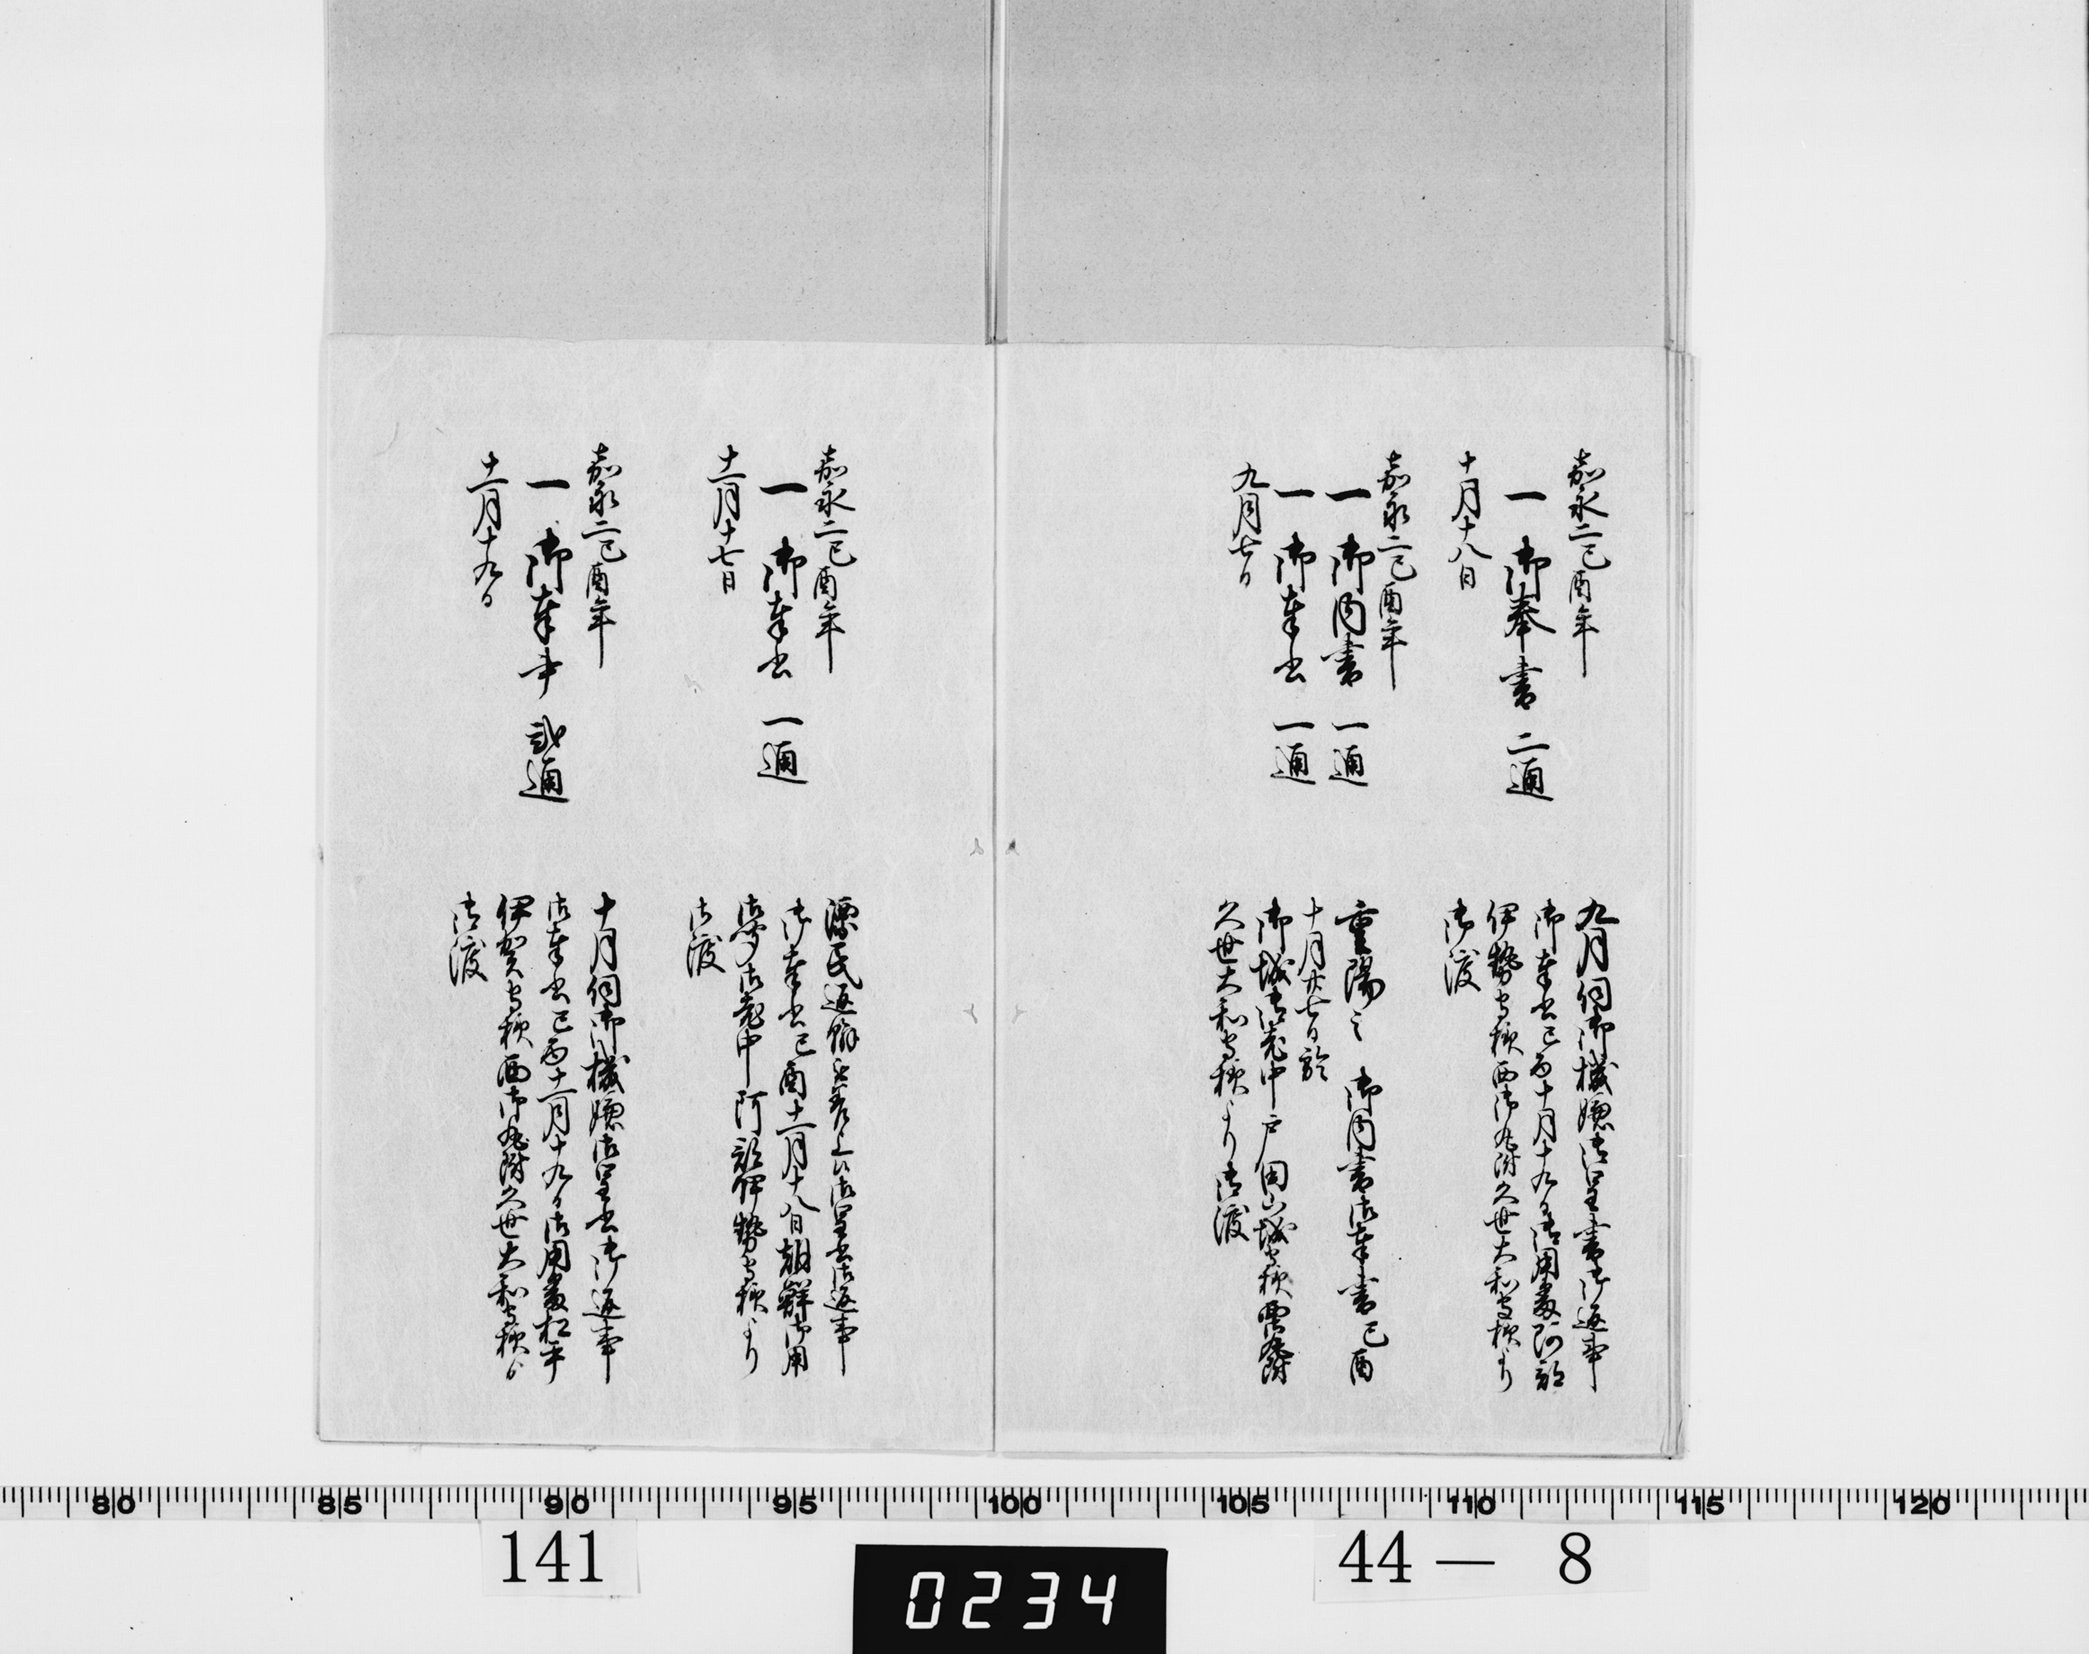 嘉永二己酉年
一 御奉書 二通
十月十八日
九月伺御機嫌御呈書御返事
御奉書己酉十月十九日御用番阿部
伊勢守様西御丸附久世大和守様より
御渡
嘉永二己酉年
一 御内書 一通
一 御奉書 一通
九月七日
重陽之 御内書御奉書己酉
十月廿七日於
御城御老中戸田山城守様西丸附
久世大和守様より御渡
嘉永二己酉年
一 御奉書 一通
十一月十七日
漂民返翰
御呈書御返事
御奉書己酉十一月十八日朝鮮御用
御老中阿部伊勢守様より
御渡
嘉永二己酉年
一 御奉書 弐通
十一月十九日
十月伺御機嫌御呈書御返事
御奉書己酉十一月十九日御用番松平
伊賀守様西御丸附久世大和守様より
御渡
80 85 90 95 100 105 110 115 120
141
0234
44— 8